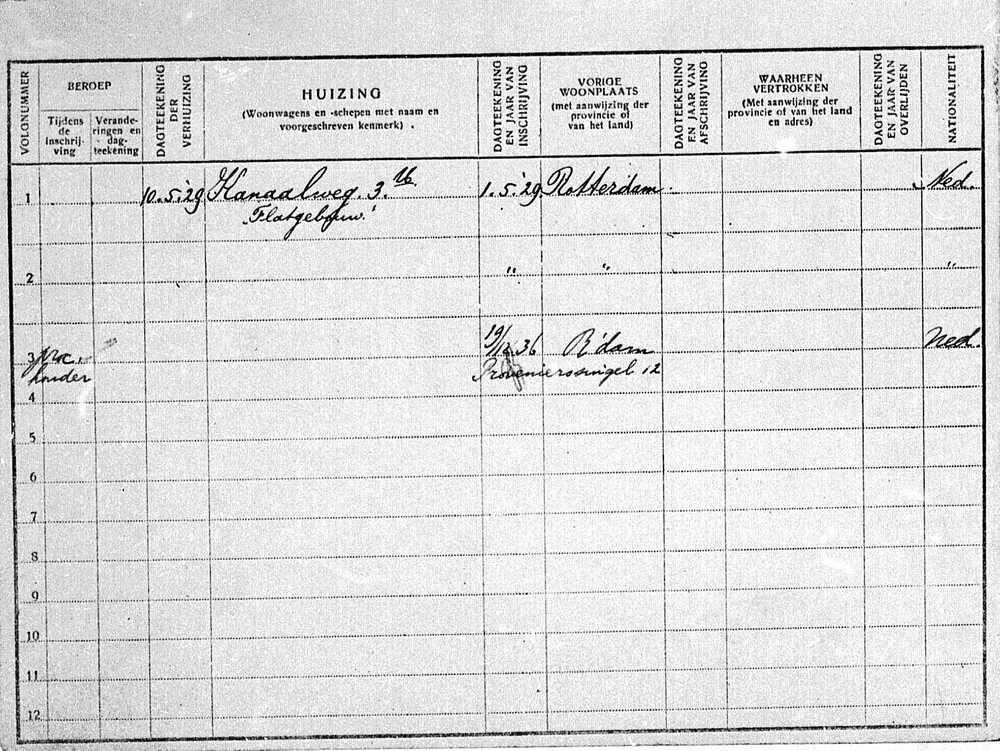 VOLGNUMMER
BEROEP
Tijdens
de
inschrij-
ving
Verande-
ringen en
dag-
teekening
DAGTEEKENING
DER
VERHUIZING
HUIZING
(Woonwagens en -schepen met naam en
voorgeschreven kenmerk) .
DAGTEEKENING
EN JAAR VAN
INSCHRIJVING
VORIGE
WOONPLAATS
(met aanwijzing der
provincie of
van het land)
DAGTEEKENING
EN JAAR VAN
AFSCHRIJVING
WAARHEEN
VERTROKKEN
(Met aanwijzing der
provincie of van het land
en adres)
DAGTEEKENING
EN JAAR VAN
OVERLIJDEN
NATIONALITEIT
1 10.5.'29 Kanaalweg. 3. 1.5.'29 Rotterdam. Ned.
"Flatgebouw."
2 " " "
3 19/12 36 R'dam Ned.
houder Provenierssingel 12
4
5
6
7
8
9
10
11
12